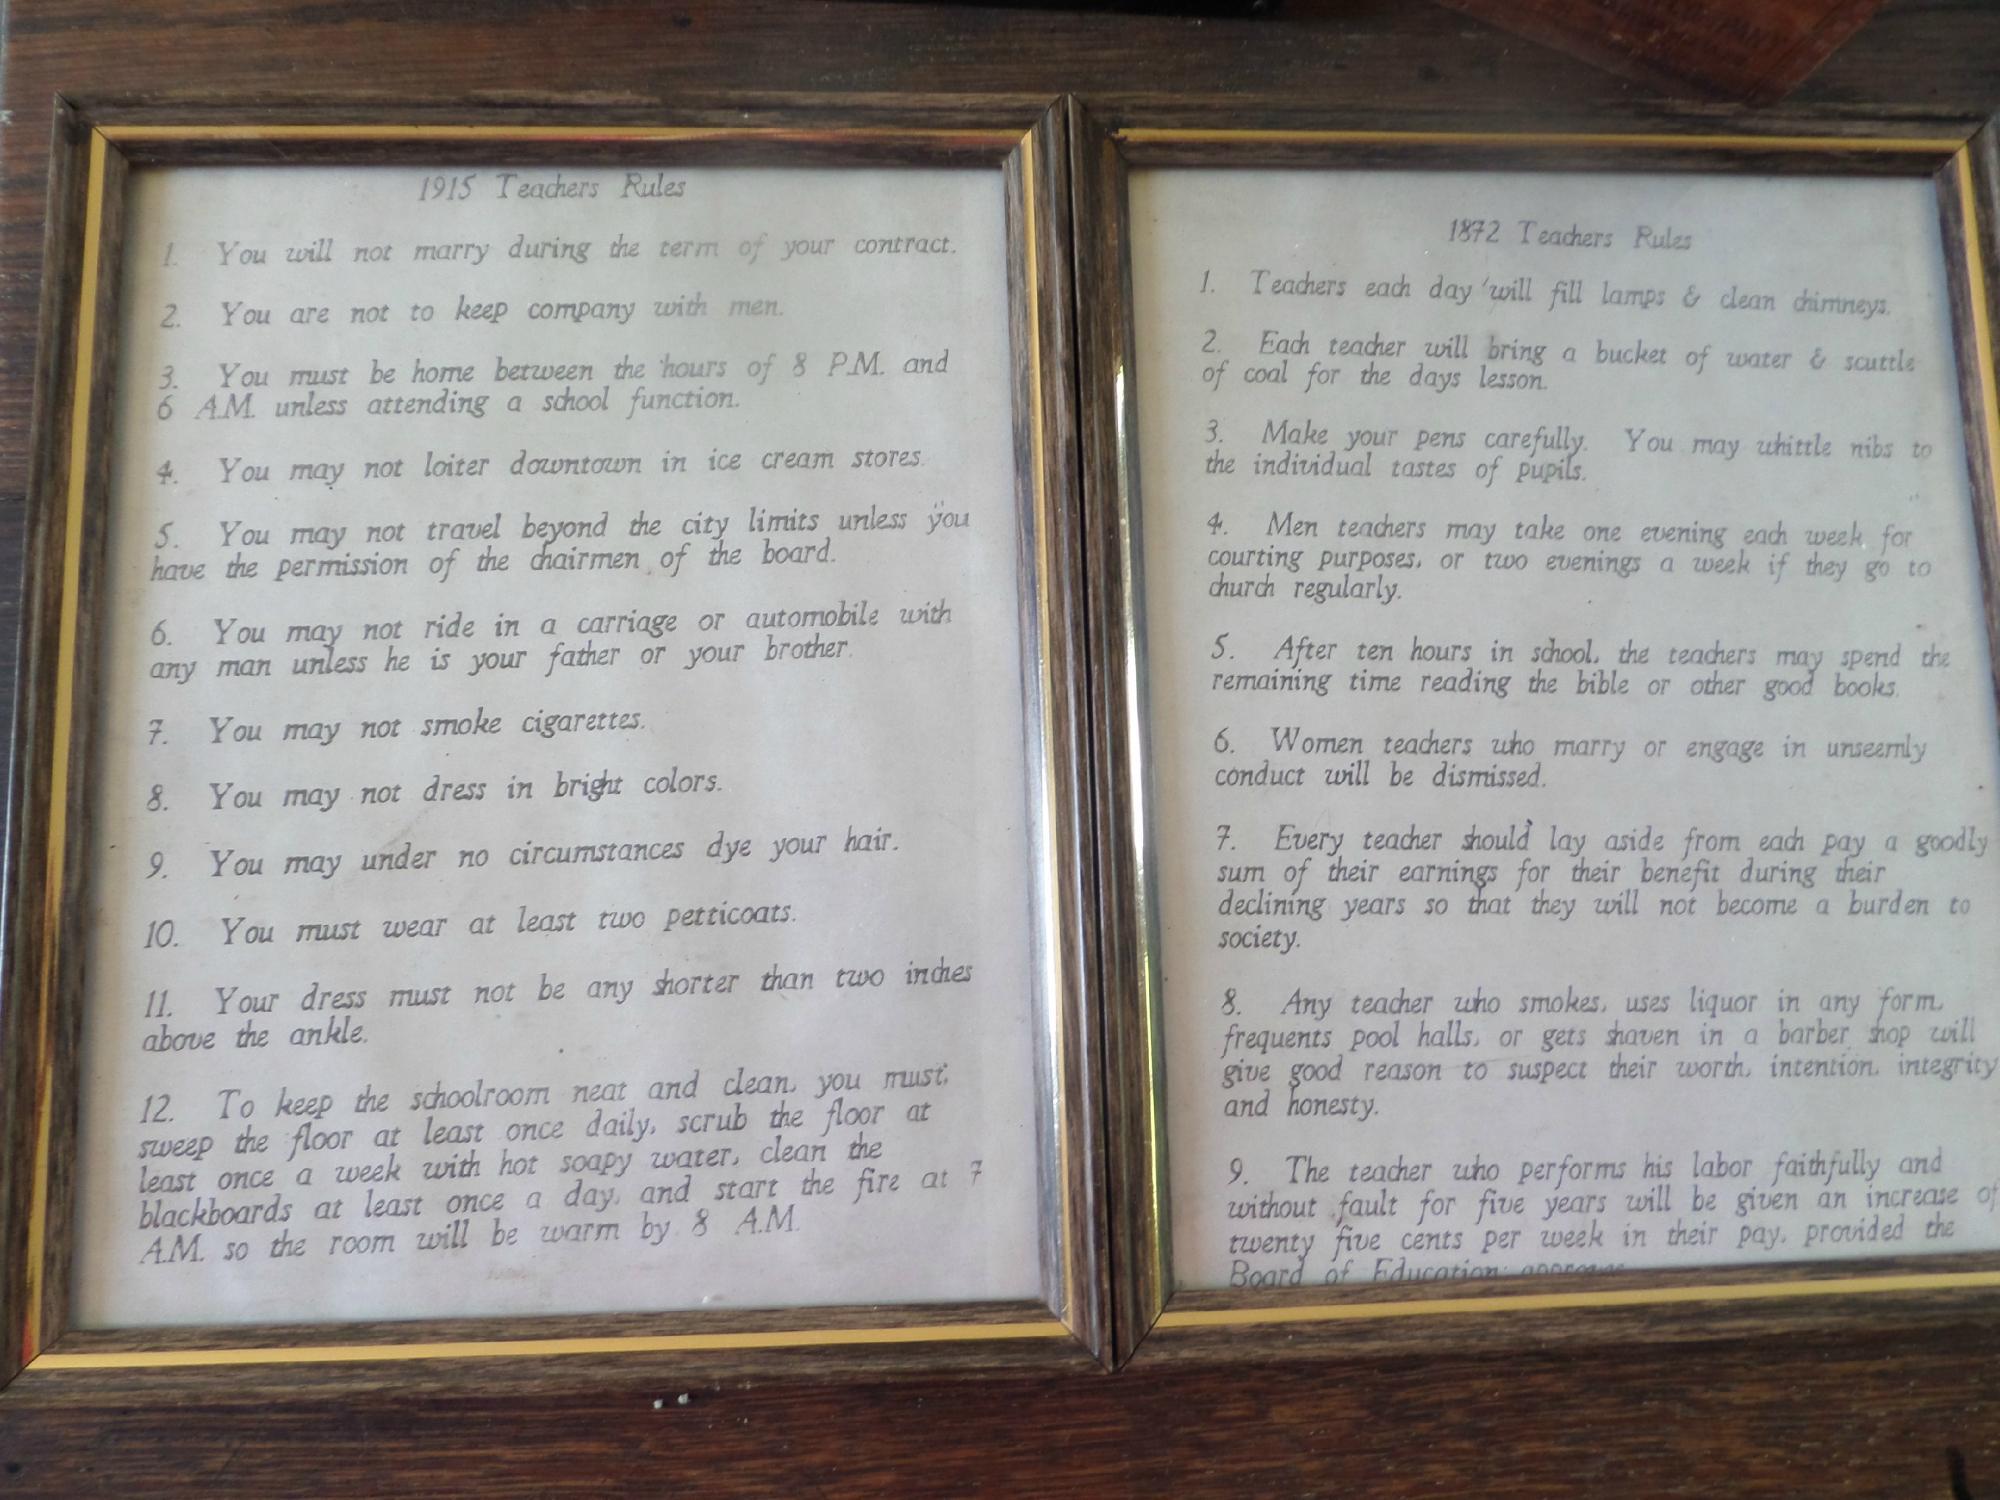 1915 Teachers Rules
1. You will not marry during the term of your contract.
2. You are not to keep company with men.
3. You must be home between the hours of 8 P.M. and
6 A.M. unless attending a school function.
4. You may not loiter downtown in ice cream stores.
5. You may not travel beyond the city limits unless you
have the permission of the chairmen of the board.
6. You may not ride in a carriage or automobile with
any man unless he is your father or your brother.
7. You may not smoke cigarettes.
8. You may not dress in bright colors.
9. You may under no circumstances dye your hair.
10. You must wear at least two petticoats.
11. Your dress must not be any shorter than two inches
above the ankle.
12. To keep the schoolroom neat and clean, you must;
sweep the floor at least once daily, scrub the floor at
least once a week with hot soapy water, clean the
blackboards at least once a day, and start the fire at 7
A.M. so the room will be warm by 8 A.M.
1872 Teachers Rules
1. Teachers each day will fill lamps & clean chimneys.
2. Each teacher will bring a bucket of water & scuttle
of coal for the days lesson.
3. Make your pens carefully. You may whittle nibs to
the individual tastes of pupils.
4. Men teachers may take one evening each week for
courting purposes, or two evenings a week if they go to
church regularly.
5. After ten hours in school, the teachers may spend the
remaining time reading the bible or other good books.
6. Women teachers who marry or engage in unseemly
conduct will be dismissed.
7. Every teacher should lay aside from each pay a goodly
sum of their earnings for their benefit during their
declining years so that they will not become a burden to
society.
8. Any teacher who smokes, uses liquor in any form,
frequents pool halls, or gets shaven in a barber shop will
give good reason to suspect their worth, intention, integrity
and honesty.
9. The teacher who performs his labor faithfully and
without fault for five years will be given an increase of
twenty five cents per week in their pay, provided the
Board of Education approves